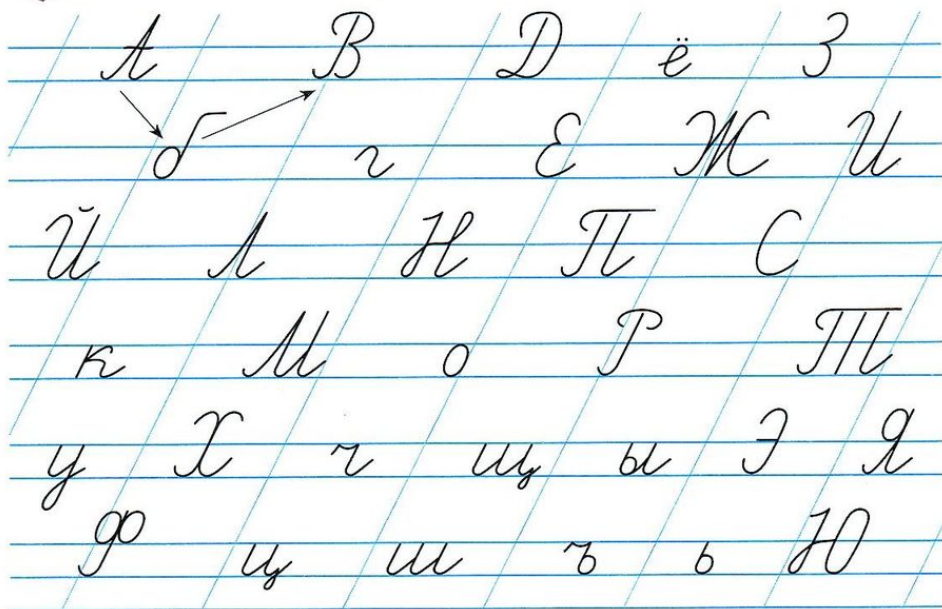 А В D ё З
б г Е Ж И
Й Л Н П С
к М о Р Т
у Х ч щ ы Э Я
Ф ц ш ъ ь Ю